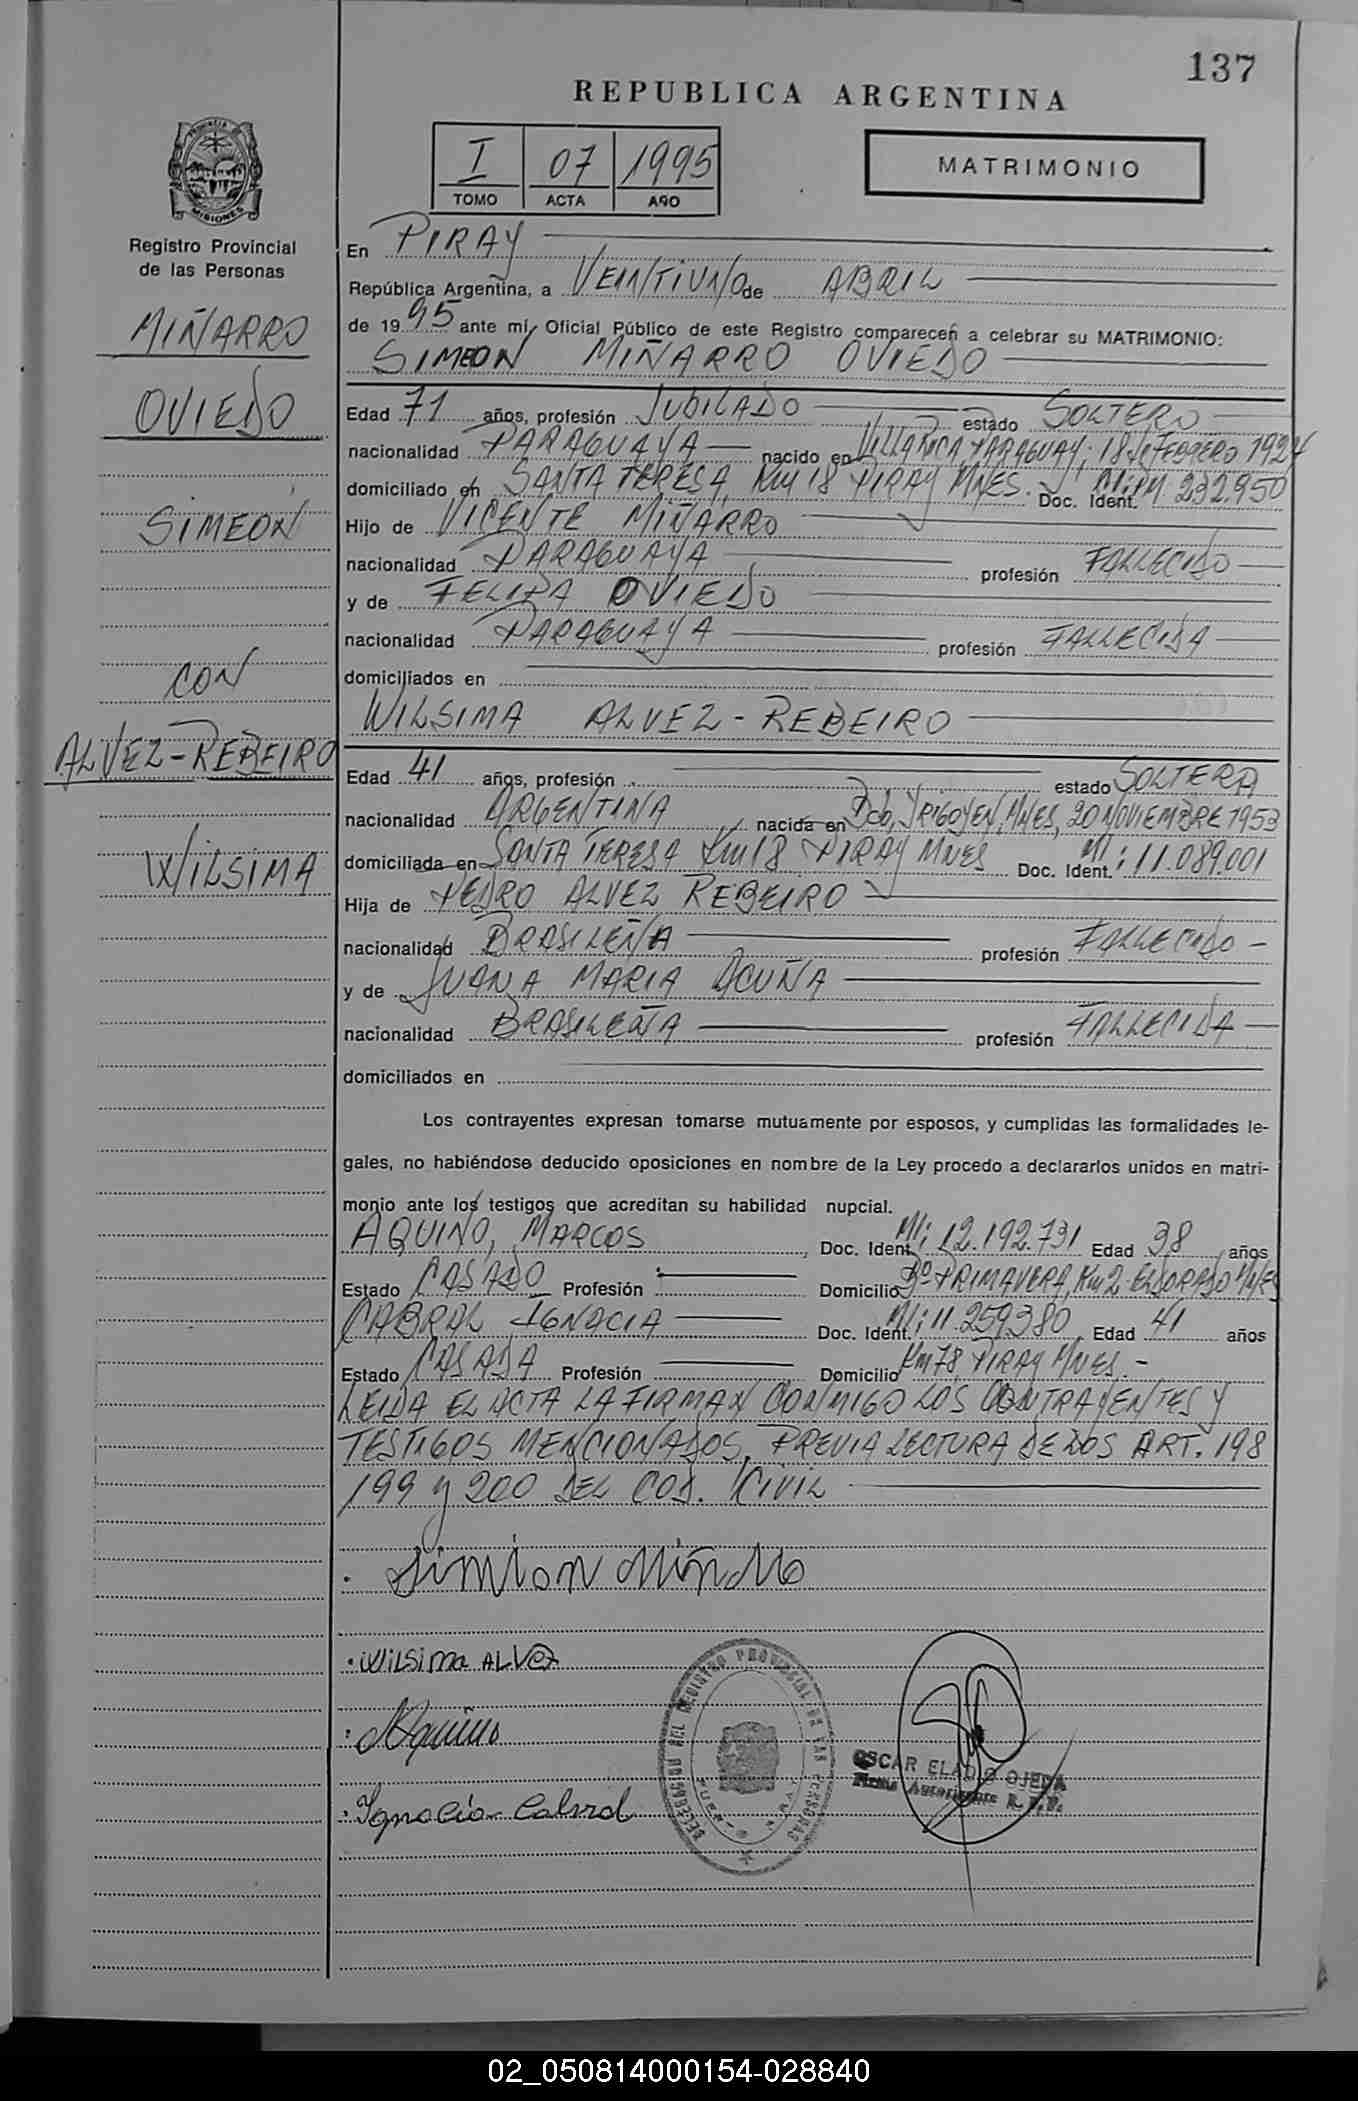 137
REPUBLICA ARGENTINA
I 07 1995
TOMO ACTA AÑO
MATRIMONIO
PROVINCIA DE MISIONES
Registro Provincial
de las Personas
MIÑARRO
OVIEDO
SIMEÓN
CON
ALVEZ-REBEIRO
WILSIMA
En PIRAY
República Argentina, a VEINTIUNO de ABRIL
de 1995 ante mí, Oficial Público de este Registro comparecen a celebrar su MATRIMONIO:
SIMEON MIÑARRO OVIEDO
Edad 71 años, profesión JUBILADO estado SOLTERO
nacionalidad PARAGUAYA nacido en VILLARICA PARAGUAY, 18 de FEBRERO 1924
domiciliado en SANTA TERESA, Km 18 PIRAY MNES. Doc. Ident. 232.950
Hijo de VICENTE MIÑARRO
nacionalidad PARAGUAYA profesión FALLECIDO
y de FELIPA OVIEDO
nacionalidad PARAGUAYA profesión FALLECIDA
domiciliados en
WILSIMA ALVEZ-REBEIRO
Edad 41 años, profesión estado SOLTERA
nacionalidad ARGENTINA nacida en Bdo, YRIGOYEN, MNES, 20 NOVIEMBRE 1953
domiciliada en SANTA TERESA Km 18 PIRAY MNES Doc. Ident. MI: 11.089.001
Hija de PEDRO ALVEZ REBEIRO
nacionalidad BRASILEÑA profesión FALLECIDO -
y de JUANA MARIA ACUÑA
nacionalidad BRASILEÑA profesión FALLECIDA
domiciliados en
Los contrayentes expresan tomarse mutuamente por esposos, y cumplidas las formalidades le-
gales, no habiéndose deducido oposiciones en nombre de la Ley procedo a declararlos unidos en matri-
monio ante los testigos que acreditan su habilidad nupcial.
AQUINO, MARCOS, Doc. Ident. MI: 12.192.731 Edad 38 años
Estado CASADO Profesión Domicilio Bº PRIMAVERA, Km 2 ELDORADO MNES
CABRAL IGNACIA Doc. Ident. MI: 11.259380 Edad 41 años
Estado CASADA Profesión Domicilio Km 18 PIRAY MNES.-
LEIDA EL ACTA LA FIRMAN CONMIGO LOS CONTRAYENTES Y
TESTIGOS MENCIONADOS, PREVIA LECTURA DE LOS ART. 198
199 y 200 DEL COD. CIVIL
Simion Miñarro
Wilsima ALVez
MAquino
Ignacia Cabral
DELEGACION DEL REGISTRO PROVINCIAL DE LAS PERSONAS
PUERTO PIRAY
OSCAR ELADIO OJEDA
Firma Autorizante R. P. P.
02_050814000154-028840